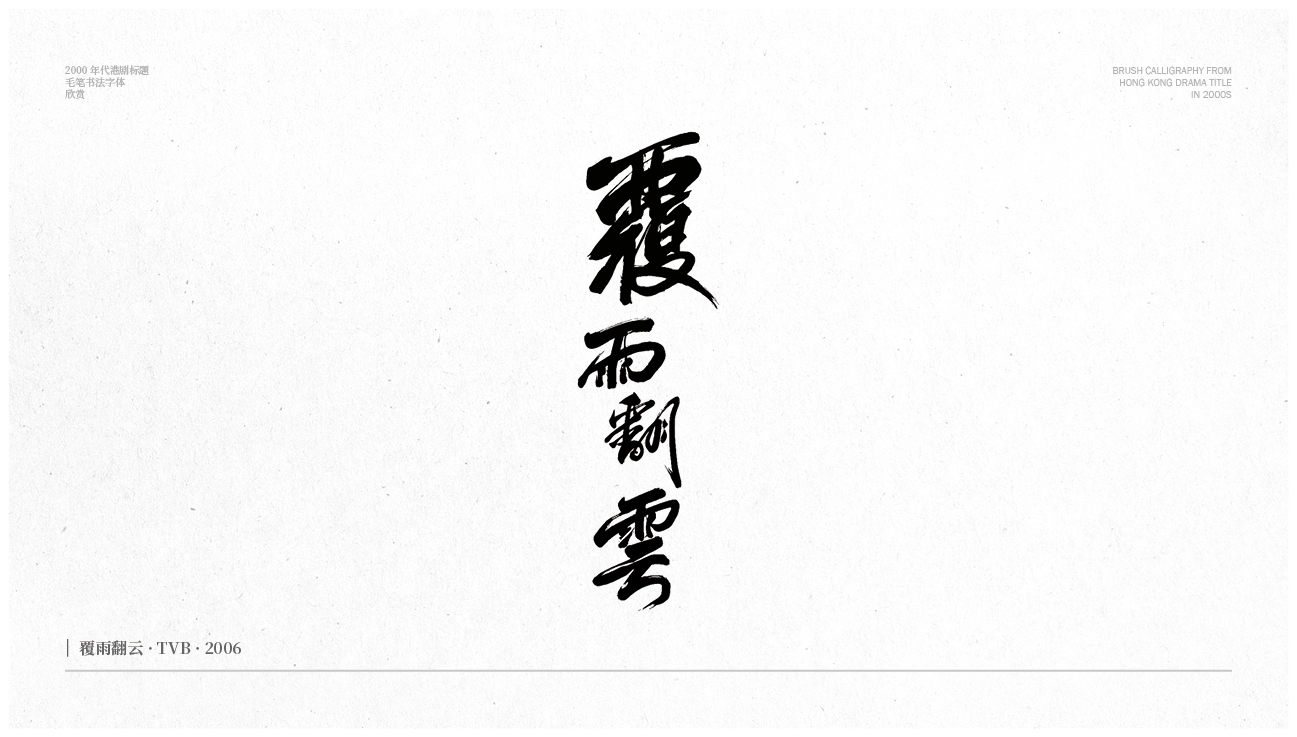 2000 年代港剧标题
毛笔书法字体
欣赏
BRUSH CALLIGRAPHY FROM
HONG KONG DRAMA TITLE
IN 2000S
覆雨翻雲
覆雨翻云 · TVB · 2006